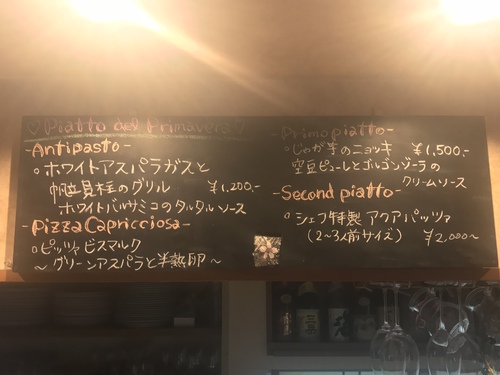 ♡Piatto del Primavera♡
Antipasto-
○ホワイトアスパラガスと
帆立貝柱のグリル ¥1,200.-
ホワイトバルサミコのタルタルソース
-Pizza Capricciosa-
○ピッツァビスマルク
～グリーンアスパラと半熟卵～
-Primo piatto-
○じゃが芋のニョッキ ¥1,500.-
空豆ピューレとゴルゴンゾーラの
クリームソース
-Second piatto-
○シェフ特製 アクアパッツァ
(2~3人前サイズ) ¥2,000~